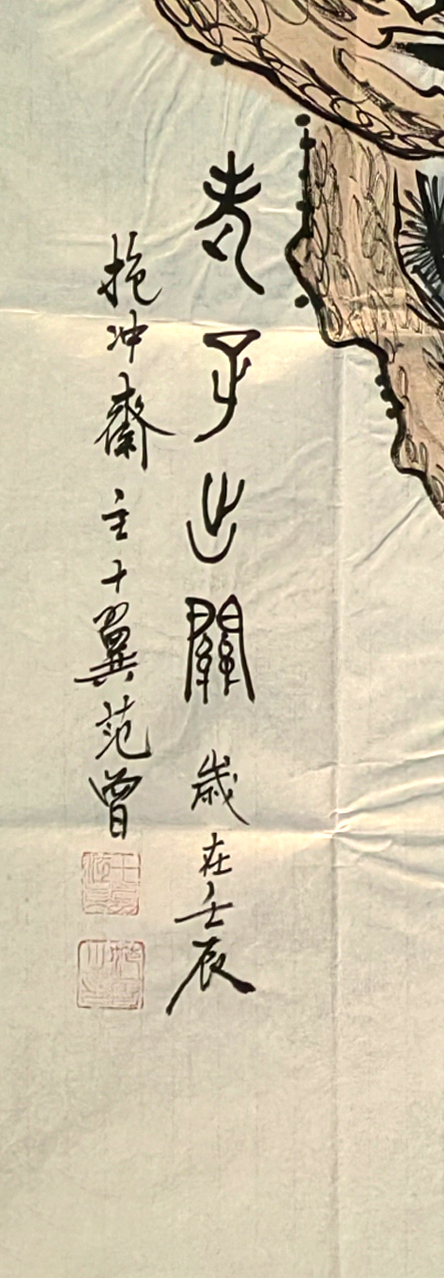 老子出關 歲在壬辰
抱冲齋主十翼范曾